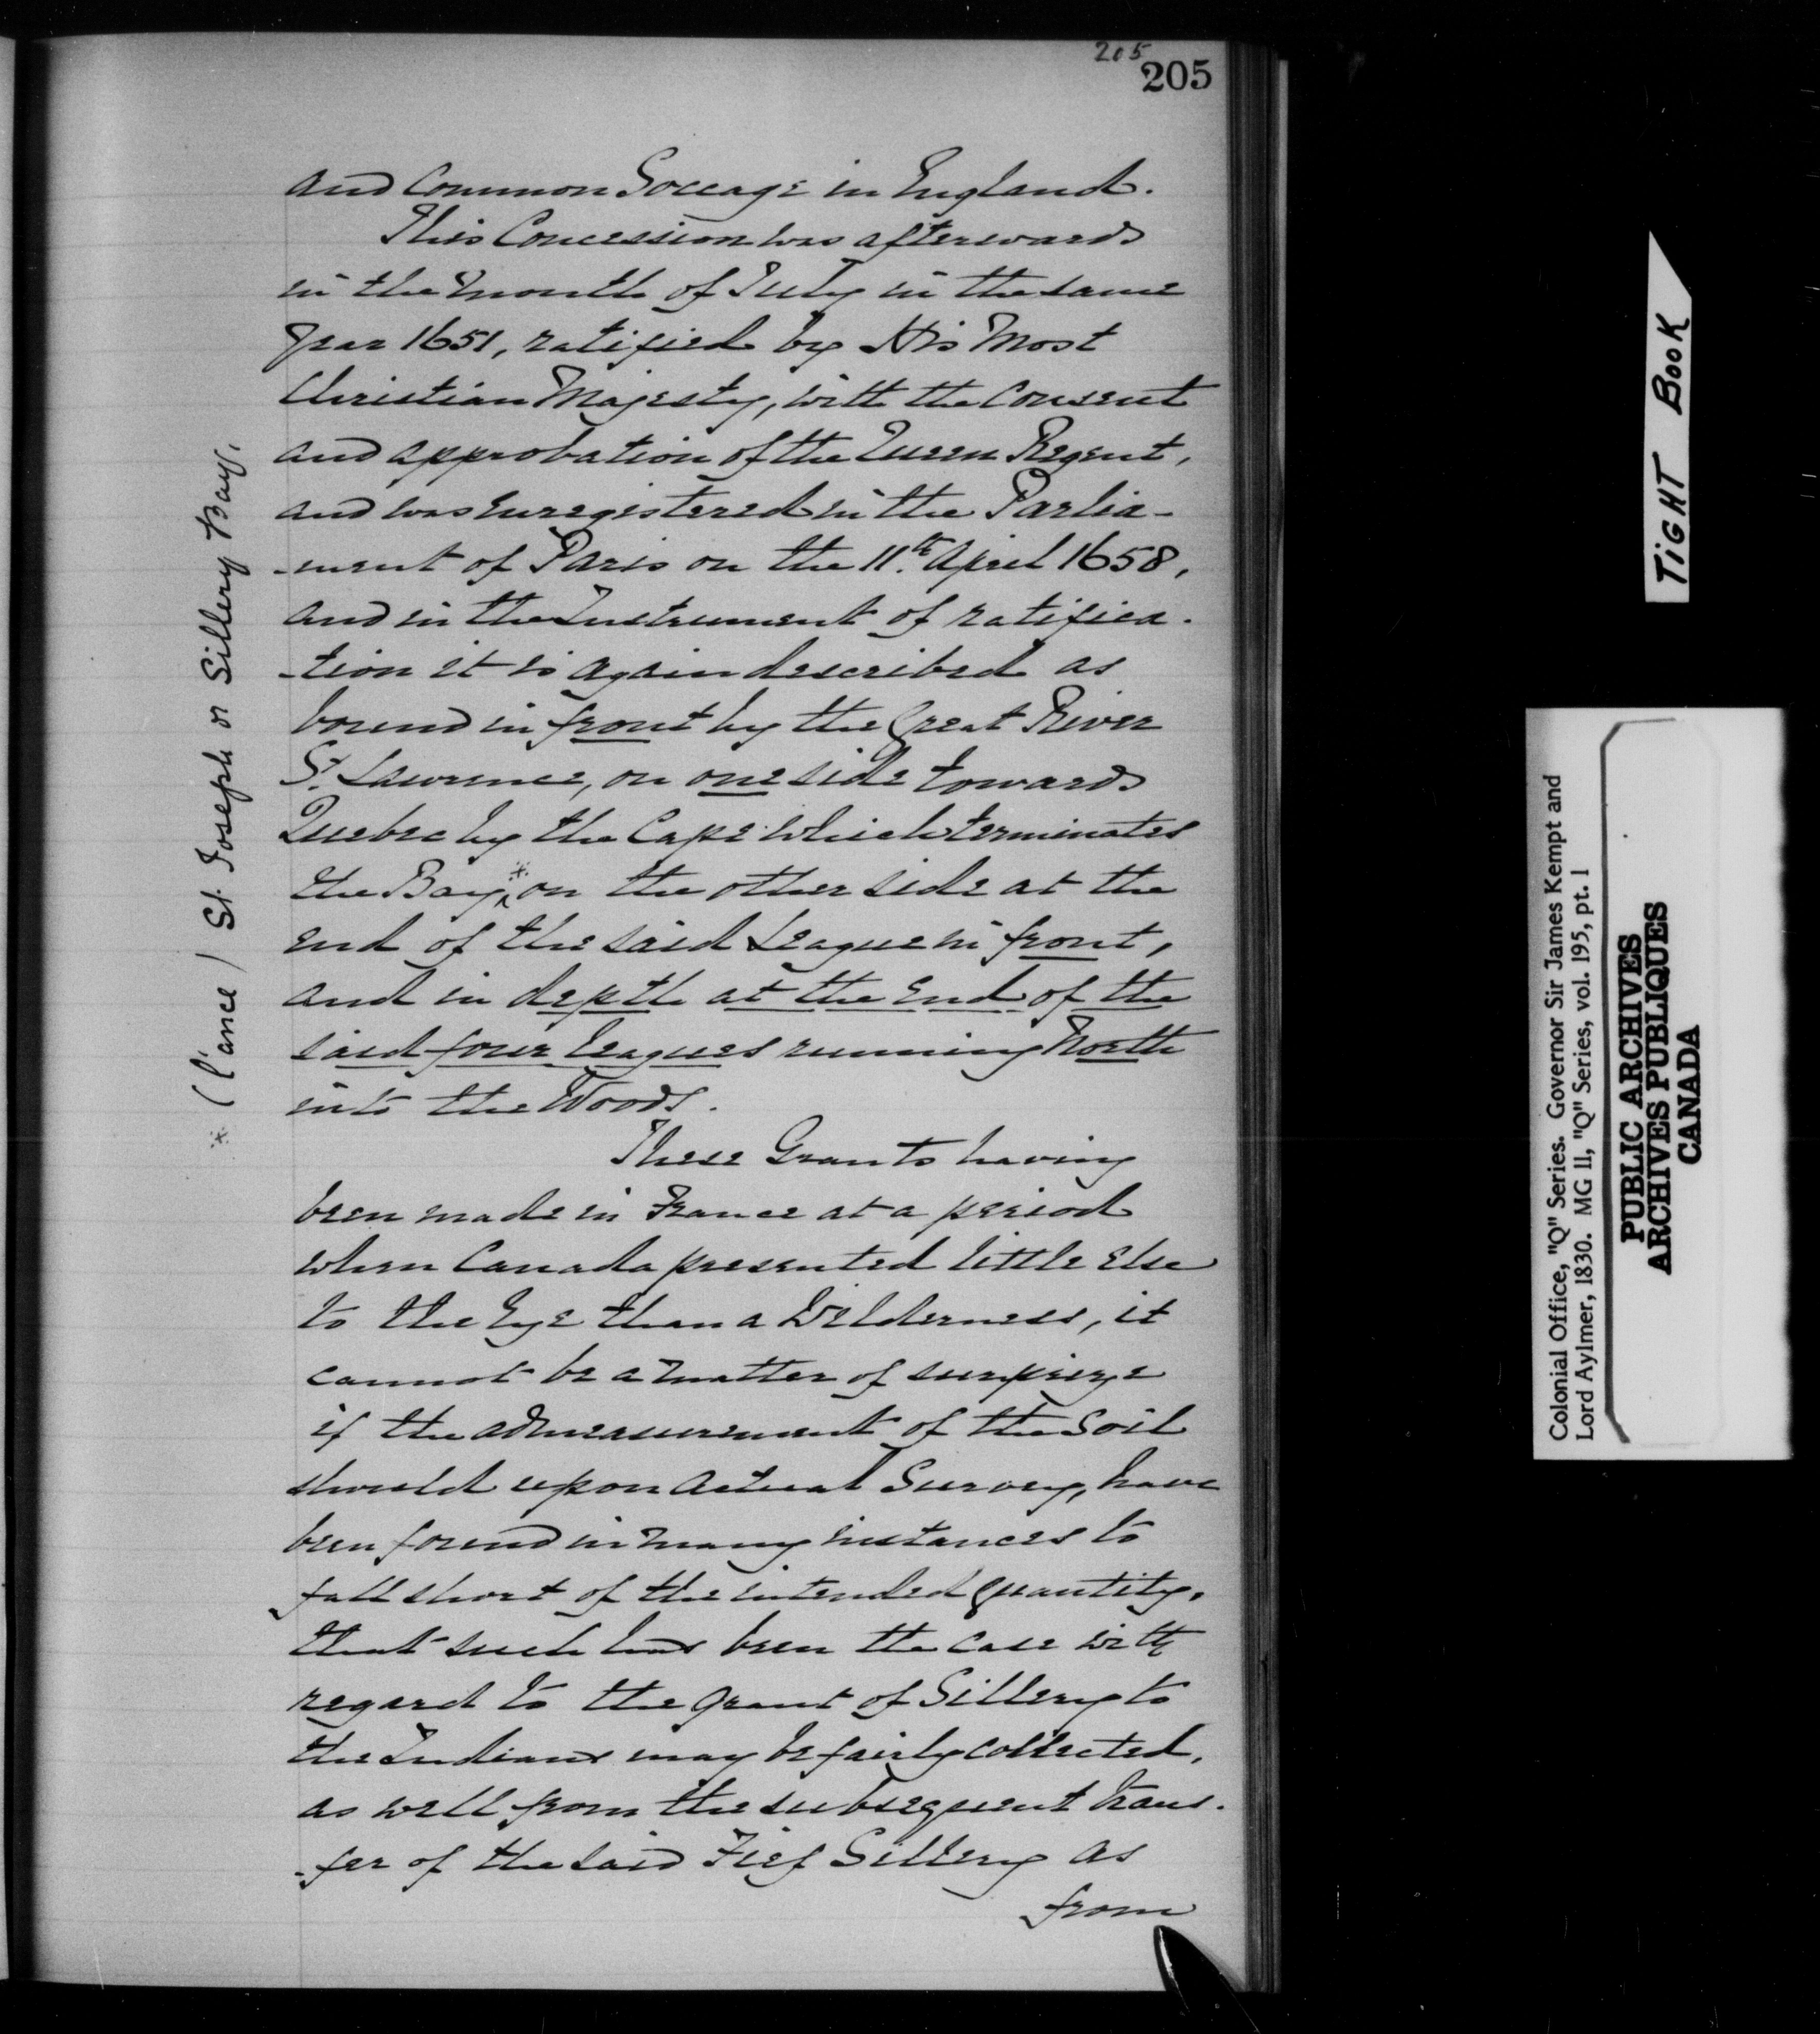 205
205
and Common Soccage in England.
This Concession was afterwards
in the month of July in the same
Year 1651, ratified by His Most
Christian Majesty, with the Consent
and approbation of the Queen Regent,
and was enregistered in the Parlia-
-ment of Paris on the 11th. April 1658,
and in the Instrument of ratifica-
-tion it is again described as
bound in front by the Great River
St. Lawrence, on one side towards
Quebec by the Cape which terminates
the Bay,* on the other side at the
end of the said League in front,
and in depth at the End of the
said four leagues running North
into the Woods.
These Grants having
been made in France at a period
when Canada presented little else
to the Eye than a Wilderness, it
cannot be a matter of surprize
if the admeasurement of the Soil
should upon actual Survey, have
been found in many instances to
fall short of the intended quantity,
that such has been the case with
regard to the grant of Sillery to
the Indians may be fairly collected,
as well from the subsequent trans-
-fer of the said Fief Sillery as
from
* (l'ance) St. Joseph or Sillery Bay.
TIGHT BOOK
Colonial Office, "Q" Series. Governor Sir James Kempt and
Lord Aylmer, 1830. MG 11, "Q" Series, vol. 195, pt. 1
PUBLIC ARCHIVES
ARCHIVES PUBLIQUES
CANADA